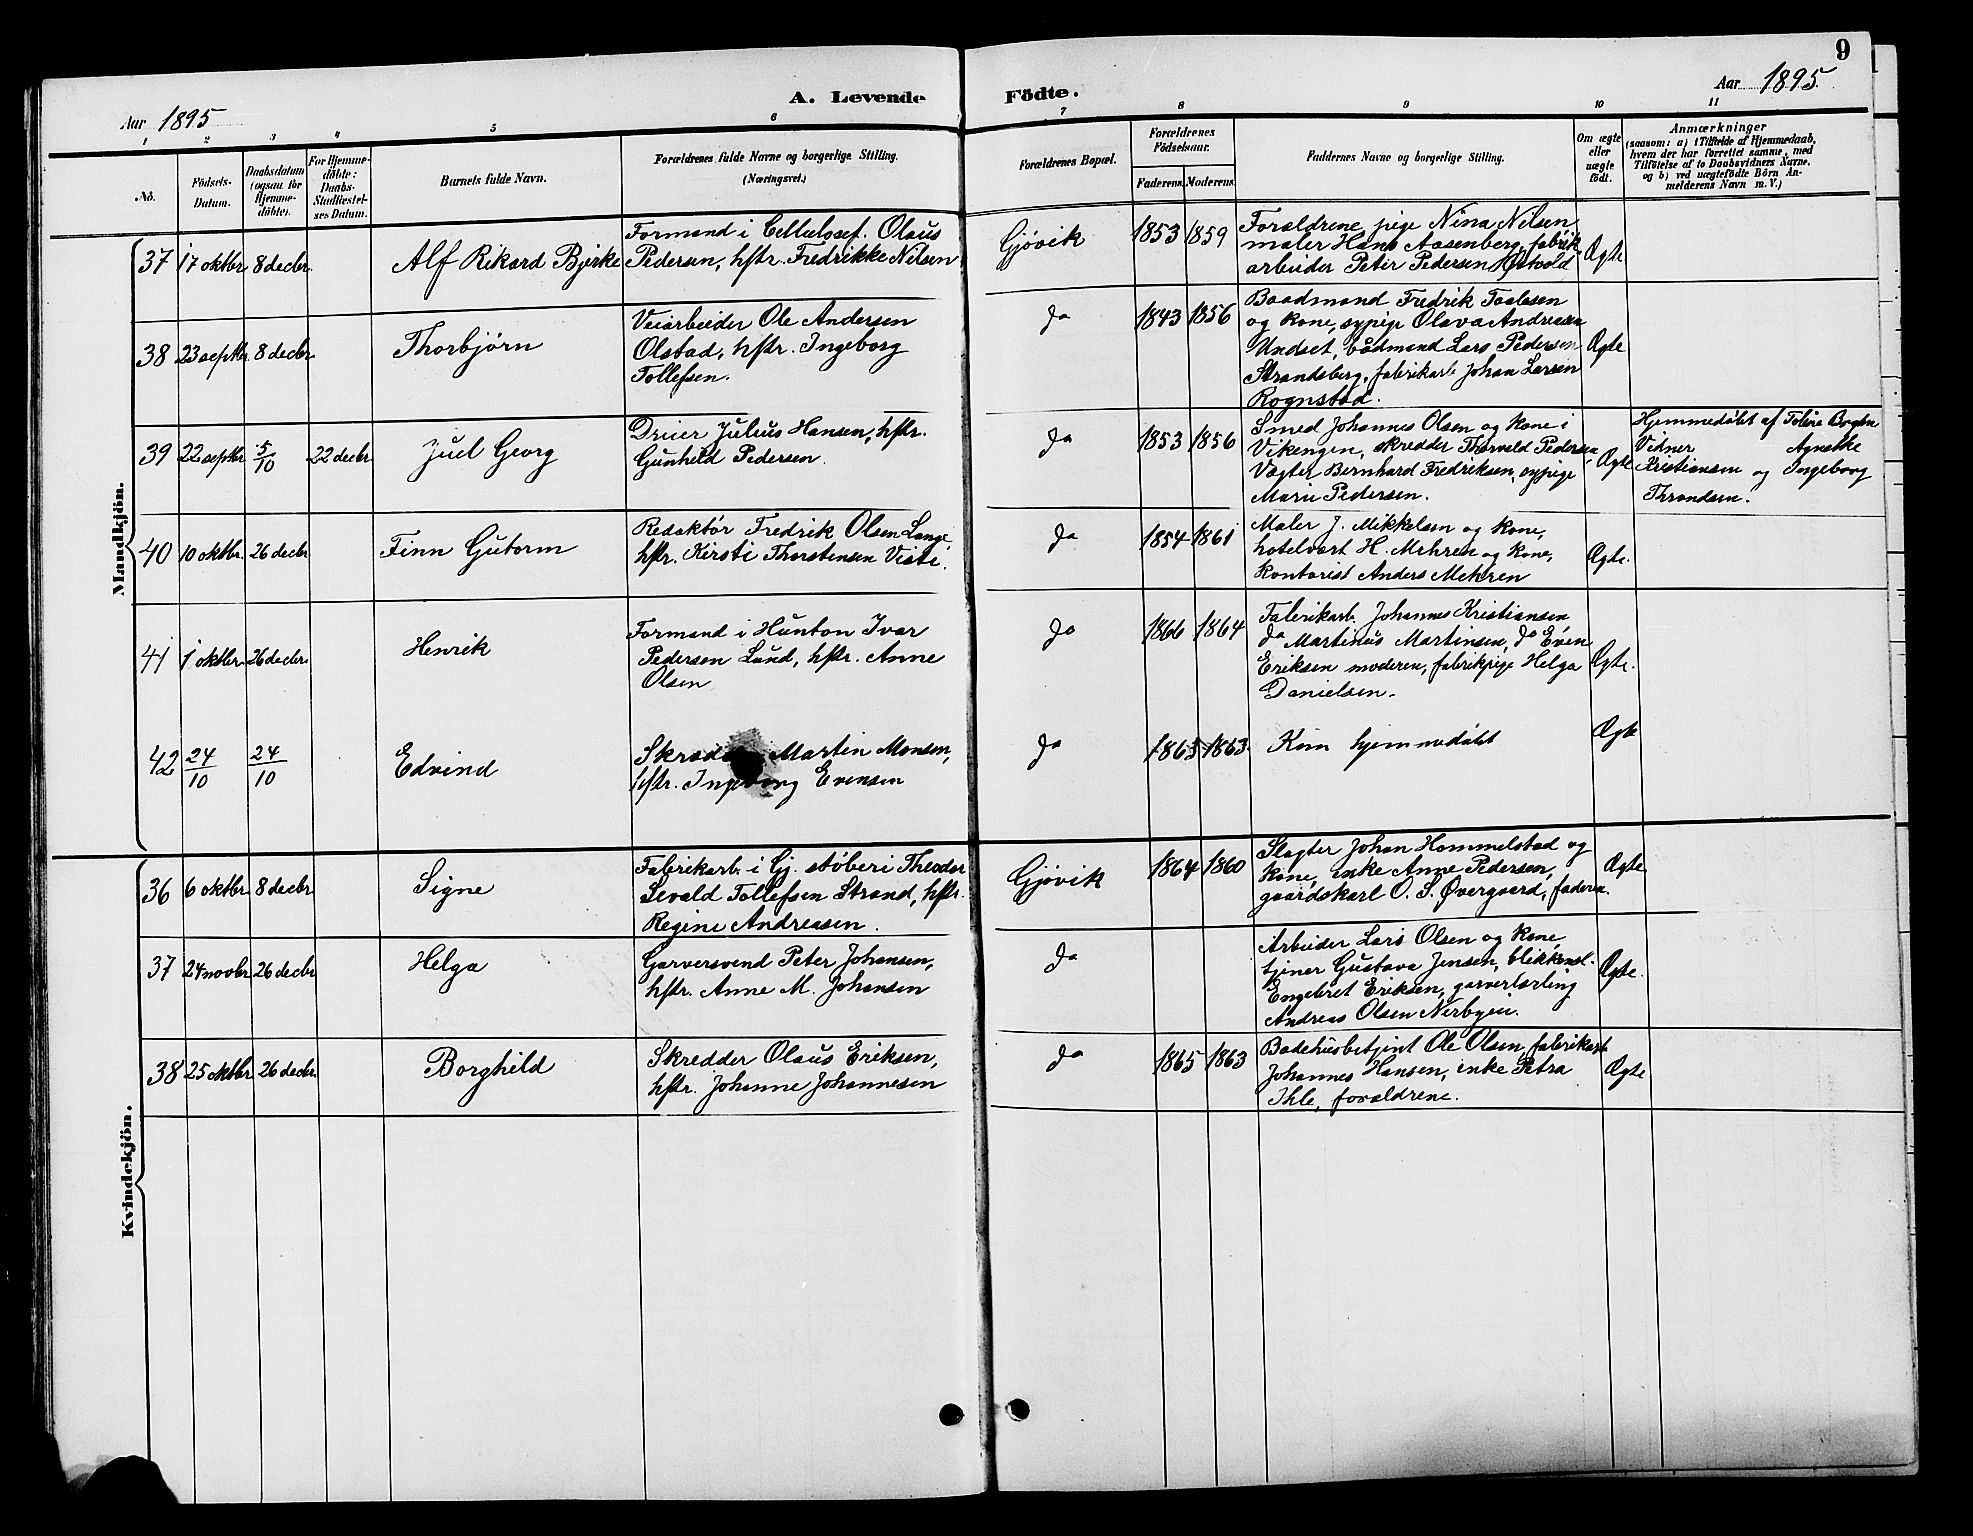 9
Aar 1895
A. Levende Födte.
Aar 1895.
1 2 3 4 5 6 7 8 9 10 11
No.
Födsels-
Datum.
Daabsdatum
(ogsaa for
Hjemme-
döbte).
For Hjemme-
döbte:
Daabs-
Stadfæstel-
ses Datum.
Barnets fulde Navn.
Forældrenes fulde Navne og borgerlige Stilling.
(Næringsvei.)
Forældrenes Bopæl.
Forældrenes
Födselsaar.
Faderens. Moderens.
Faddernes Navne og borgerlige Stilling.
Om ægte
eller
uægte
födt.
Anmærkninger
(saasom: a) i Tilfælde af Hjemmedaab,
hvem der har forrettet samme, med
Tilföielse af to Daabsvidners Navne,
og b) ved uægtefödte Börn An-
melderens Navn m. V.)
Mandkjön.
37 17 oktbr. 8 decbr. Alf Rikard Bjerke
Formand i Cellulosef. Olaus
Pedersen, hstr. Fredrikke Nilsen
Gjøvik 1853 1859
Forældrene, pige Nina Nilsen
maler Hans Aasenberg, fabrik
arbeider Peter Pedersen Østvold
Ægte
38 23 septbr. 8 decbr. Thorbjørn
Veiarbeider Ole Andersen
Olstad, hstr. Ingeborg
Tollefsen.
do 1843 1856
Baadmand Fredrik Paulsen
og kone, sypige Olava Andreasen
Undset, bådmand Lars Pedersen
Strandsberg, fabrikarb. Johan Larsen
Rognstad.
Ægte
39 22 septbr. 5/10 22 decbr. Juel Georg
Dreier Julius Hansen, hstr.
Gunhild Pedersen.
do 1853 1856
Smed Johannes Olsen og kone i
Vikengen, skredder Thorvald Pedersen,
Vægter Bernhard Fredriksen, sypige
Marie Pedersen.
Ægte
Hjemmedøbt af
Vidner Agnethe
Kristiansen og Ingeborg
Throndsen.
40 10 oktbr. 26 decbr. Finn Gutorm
Redaktør Fredrik Olsen Lange
hstr. Kirsti Thorstensen Visti.
do 1854 1861
Maler J. Mikkelsen og kone,
hotelvært H. Mehren og kone,
kontorist Anders Mehren
Ægte.
41 1 oktbr. 26 decbr. Henrik
Formand i Hunton Ivar
Pedersen Lund, hstr. Anne
Olsen
do 1866 1864
Fabrikarb. Johannes Kristiansen,
do Martinus Martinsen, do Even
Eriksen moderen, fabrikpige Helga
Danielsen.
Ægte.
42 24/10 24/10 Edvind
Martin Monsen,
hstr. Ingeborg Evensen
do 1863 1863
Kun hjemmedøbt
Ægte
Kvindekjön.
36 6 oktbr. 8 decbr. Signe
Fabrikarb. i Gj. støberi Theodor
Sevald Tollefsen Strand, hstr.
Regine Andreasen.
Gjøvik 1864 1860
Slagter Johan Hommelstad og
kone, enke Anne Pedersen,
gaardskarl O. S. Øvergaard, faderen.
Ægte.
37 24 novbr. 26 decbr. Helga
Garversvend Peter Johansen,
hstr. Anne M. Johansen
do
Arbeider Lars Olsen og kone,
tjener Gustava Jensen, blikkensl.
Engebret Eriksen, garverlærling
Andreas Olsen Nerbyen.
Ægte.
38 25 oktbr. 26 decbr. Borghild
Skredder Olaus Eriksen,
hstr. Johanne Johannesen
do 1865 1863
Badehusbetjent Ole Olsen, fabrikarb.
Johannes Hansen, enke Petra
Ihle, forældrene.
Ægte